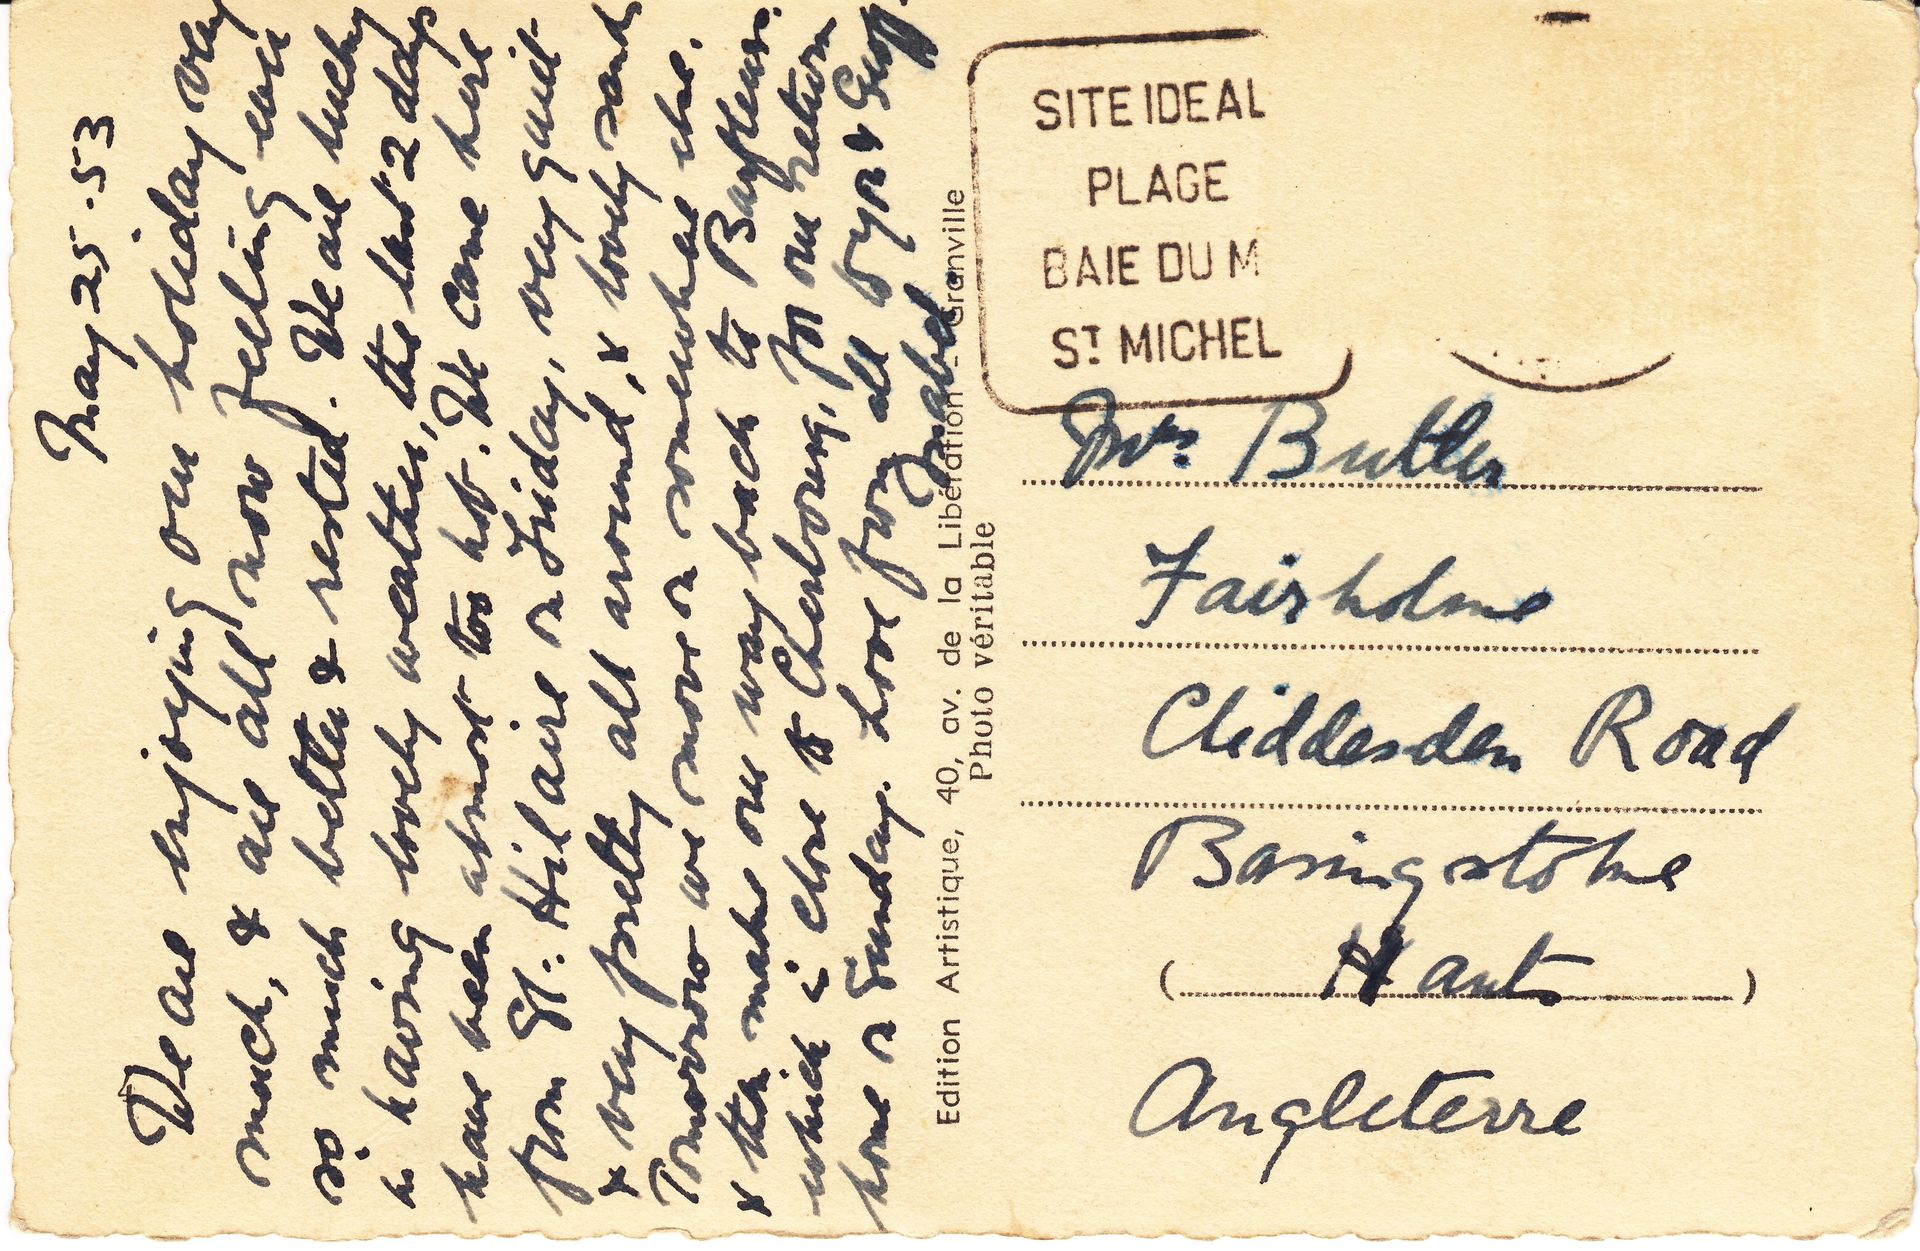 May 25.53
We are enjoying our holiday very
much, & are all now feeling ever
so much better & rested. We are lucky
in having lovely weather, the last 2 days
have been almost too hot. We came here
from St. Hilaire on Friday, very quiet
& very pretty all around, & lovely sands
Tomorrow we move on somewhere else.
& then make our way back to Barfleur.
which is close to Cherbourg, for our return
home on Sunday. Love from all Syn & Geoff.
Mabel
Edition Artistique, 40, av. de la Libération - Granville
Photo véritable
SITE IDEAL
PLAGE
BAIE DU M
ST MICHEL
Mrs Butler
Fairholme
Cliddesden Road
Basingstoke
(Hants)
Angleterre